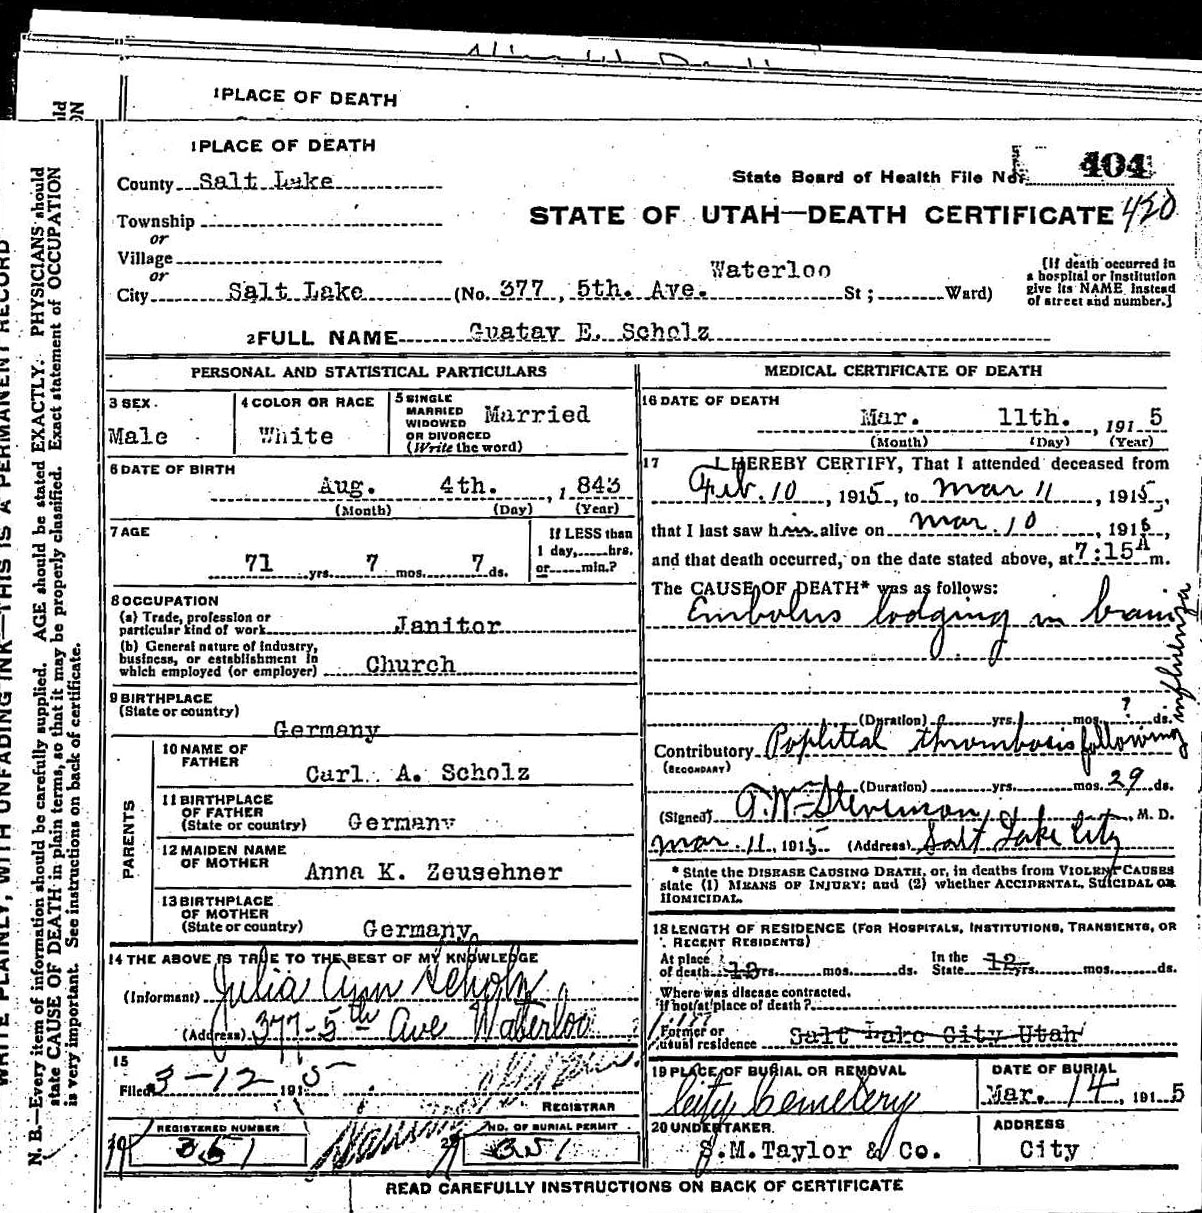 1 PLACE OF DEATH
1 PLACE OF DEATH
County Salt Lake
State Board of Health File No. 404
Township
or
STATE OF UTAH—DEATH CERTIFICATE 420
Village
or
City Salt Lake (No. 377, 5th. Ave. Waterloo St; Ward)
[If death occurred in
a hospital or institution
give its NAME instead
of street and number.]
2 FULL NAME Guatav E. Scholz
PERSONAL AND STATISTICAL PARTICULARS
3 SEX. Male
4 COLOR OR RACE White
5 SINGLE
MARRIED
WIDOWED
OR DIVORCED
(Write the word) Married
6 DATE OF BIRTH
Aug. 4th. , 1843
(Month) (Day) (Year)
7 AGE
71 yrs. 7 mos. 7 ds.
If LESS than
1 day, hrs.
or min.?
8 OCCUPATION
(a) Trade, profession or
particular kind of work Janitor
(b) General nature of Industry,
business, or establishment in
which employed (or employer) Church
9 BIRTHPLACE
(State or country)
Germany
PARENTS
10 NAME OF
FATHER Carl. A. Scholz
11 BIRTHPLACE
OF FATHER
(State or country) Germany
12 MAIDEN NAME
OF MOTHER Anna K. Zeusehner
13 BIRTHPLACE
OF MOTHER
(State or country) Germany
14 THE ABOVE IS TRUE TO THE BEST OF MY KNOWLEDGE
(Informant) Julia Ann Scholz
(Address) 377-5th Ave Waterloo
15
Filed 3-12 1915
REGISTRAR
REGISTERED NUMBER
351
NO. OF BURIAL PERMIT
351
MEDICAL CERTIFICATE OF DEATH
16 DATE OF DEATH
Mar. 11th. , 1915
(Month) (Day) (Year)
17 I HEREBY CERTIFY, That I attended deceased from
Feb. 10, 1915, to Mar 11, 1915,
that I last saw him alive on Mar. 10, 1915,
and that death occurred, on the date stated above, at 7:15 A m.
The CAUSE OF DEATH* was as follows:
Embolus lodging in brain
(Duration) yrs. mos. ? ds.
Contributory Poplitial thrombosis following influenza
(SECONDARY)
(Duration) yrs. mos. 29 ds.
(Signed) A. W. Stevenson, M. D.
Mar. 11, 1915 (Address) Salt Lake City
* State the DISEASE CAUSING DEATH, or, in deaths from VIOLENT CAUSES
state (1) MEANS OF INJURY; and (2) whether ACCIDENTAL, SUICIDAL OR
HOMICIDAL.
18 LENGTH OF RESIDENCE (FOR HOSPITALS, INSTITUTIONS, TRANSIENTS, OR
RECENT RESIDENTS)
At place
of death 12 yrs. mos. ds.
In the
State 12 yrs. mos. ds.
Where was disease contracted,
if not at place of death?
Former or
usual residence Salt Lake City Utah
19 PLACE OF BURIAL OR REMOVAL
City Cemetery
DATE OF BURIAL
Mar. 14 1915
20 UNDERTAKER.
S.M.Taylor & Co.
ADDRESS
City
READ CAREFULLY INSTRUCTIONS ON BACK OF CERTIFICATE
WRITE PLAINLY, WITH UNFADING INK—THIS IS A PERMANENT RECORD
N. B.—Every item of information should be carefully supplied. AGE should be stated EXACTLY. PHYSICIANS should
state CAUSE OF DEATH in plain terms, so that it may be properly classified. Exact statement of OCCUPATION
is very important. See instructions on back of certificate.